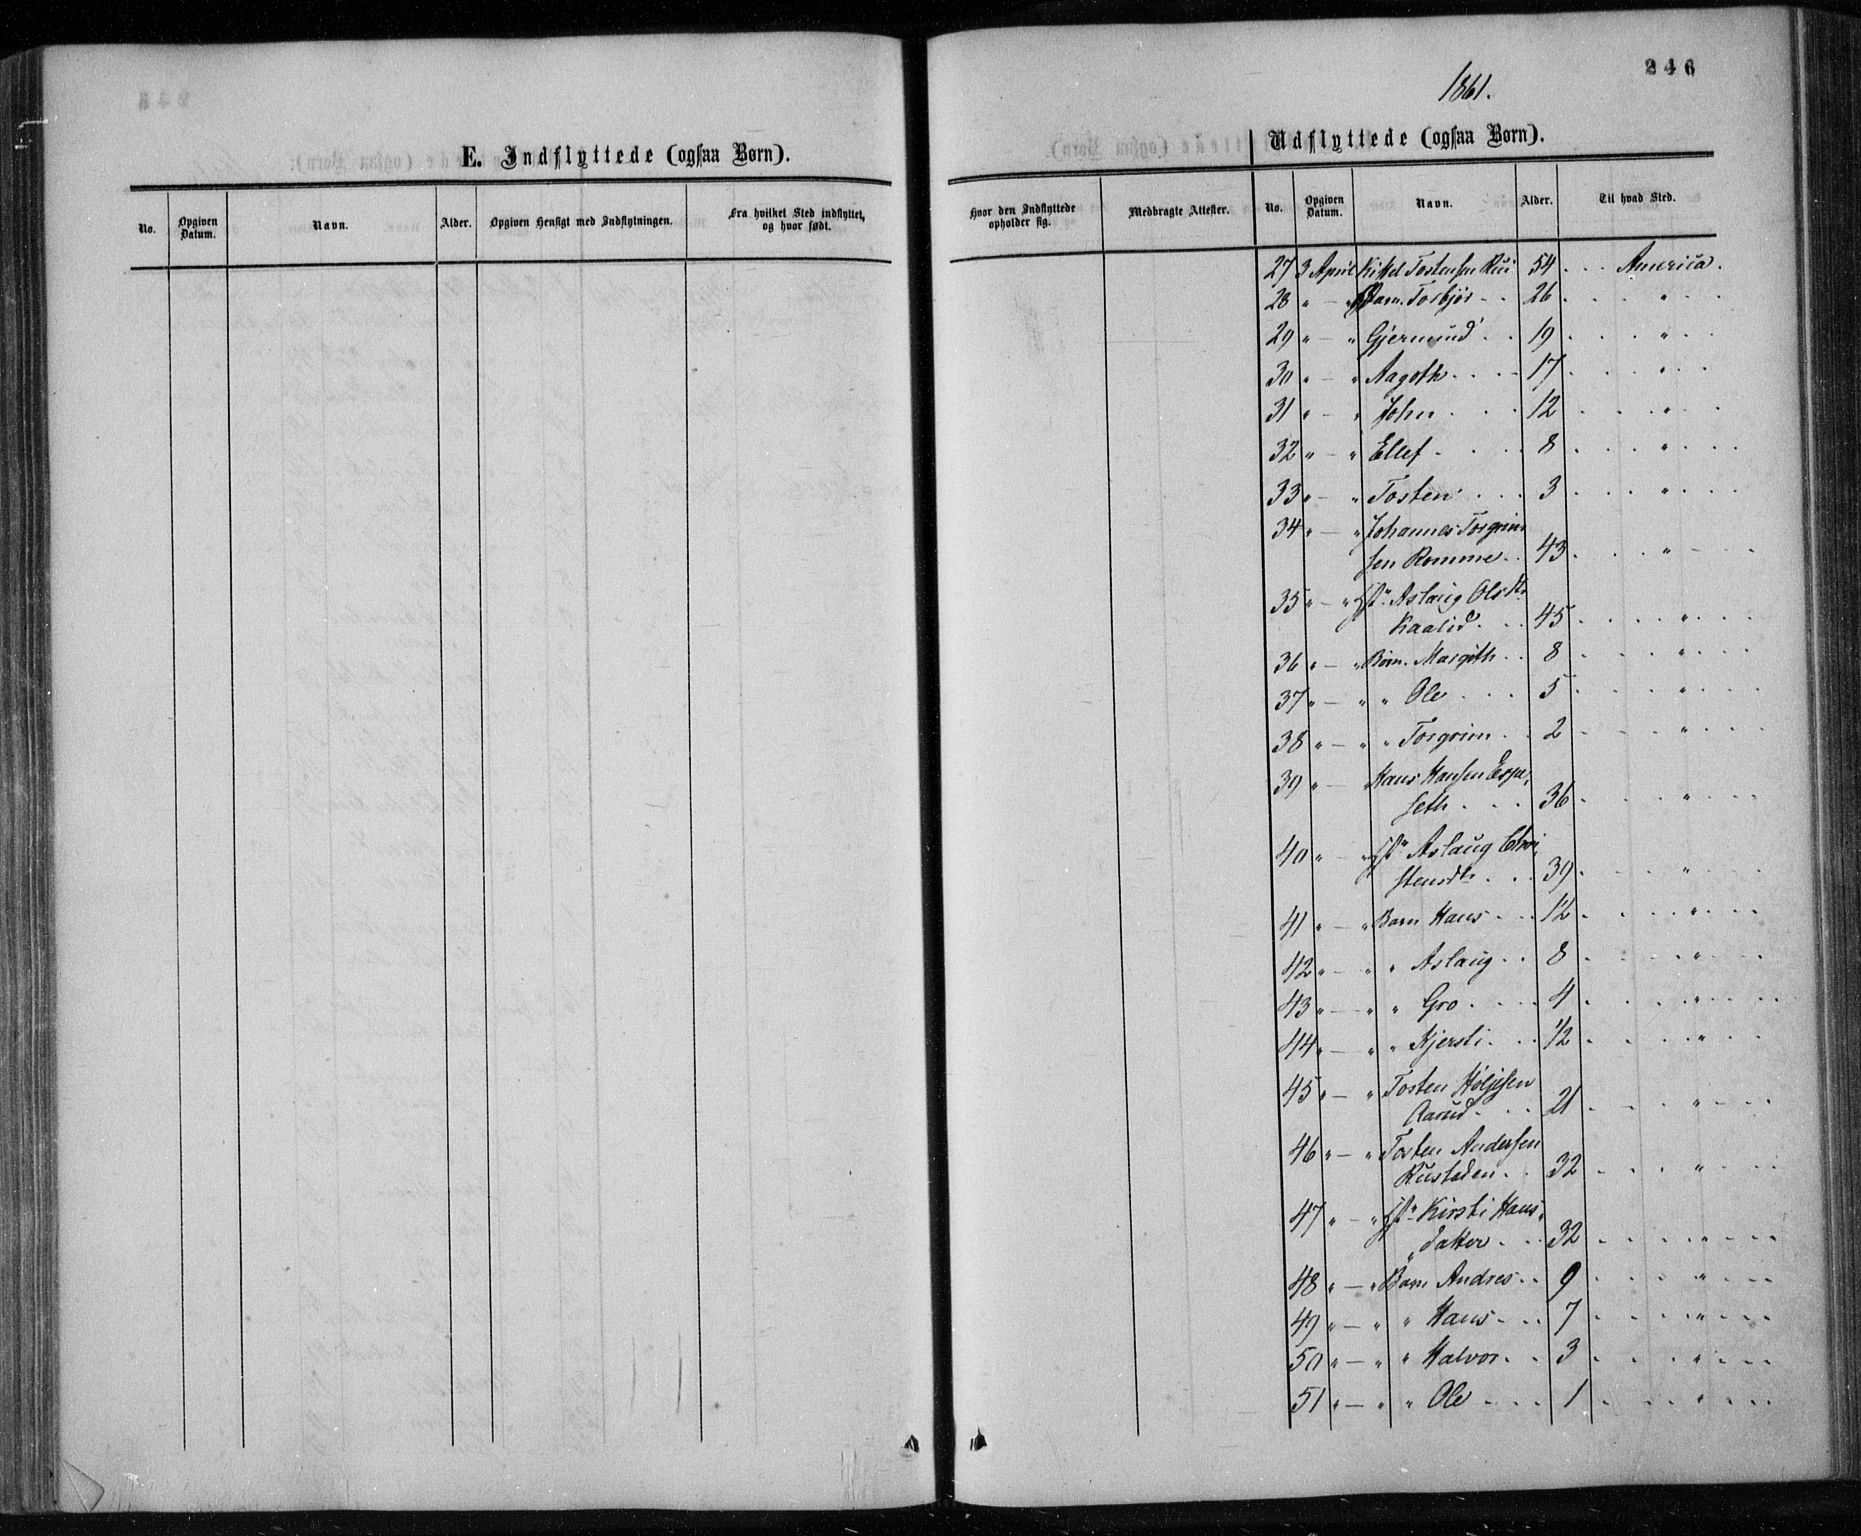 246
1861.
E. Indflyttede (ogsaa Børn).
Udflyttede (ogsaa Børn).
No. Opgiven Datum. Navn. Alder. Opgiven Hensigt med Indflytningen. Fra hvilket Sted indflyttet, og hvor født. Hvor den Indflyttede opholder sig. Medbragte Attester. No. Opgiven Datum. Navn. Alder. Til hvad Sted.
27 3 April Kittel Tostensen Rui 54 . . . America .
28 " — " Barn. Torbjør . . 26 . . . " . . .
29 " — " Gjermund . . 19 . . . " . .
30 " — " Aagoth . . . . 17 . . . " . .
31 " — " John . . . 12 . . . " . .
32 " — " Ellef . . . 8 . . . " . . .
33 " — " Tosten . . . 3 . . . " . . .
34 " — " Johannes Torgrim
sen Romme . . 43 . . . " — . .
35 " — " Hst" Aslaug Olsdtr
Kaalid . . . 45 . . . . " . . .
36 " — " Børn. Margith . . 8 . . . . " . . .
37 " — " " Ole . . . 5 . . . . " . . .
38 " — " " Torgrim . . 2 . . . . " . . .
39 " — " Hans Hansen Espe,
seth . . . 36 . . . . " . . .
40 " — " Hst" Aslaug Chri,
stensdtr . . . 39 . . . . " . . .
41 " — " Barn Hans . . . 12 . . . . " . . .
42 " — " " Aslaug . . 8 . . . . " . . .
43 " — " " Gro . . . . 4 . . . . " . . .
44 " — " " Kjersti . . . 1/2 . . . . " . . .
45 " — " Tosten Høljesen
Aarud . . . 21 . . . . " . . .
46 " — " Tosten Andersen
Rustaden . . 32 . . . . " . . .
47 " — " Hst" Kirsti Hans,
"datter . . . 32 . . . . " . . .
48 " — " Barn Andres . . 9 . . . . " . . .
49 " — " " Hans . . . 7 . . . . " . . .
50 " — " " Halvor . . 3 . . . . " . . .
51 " — " " Ole . . . . 1 . . . . " . . .